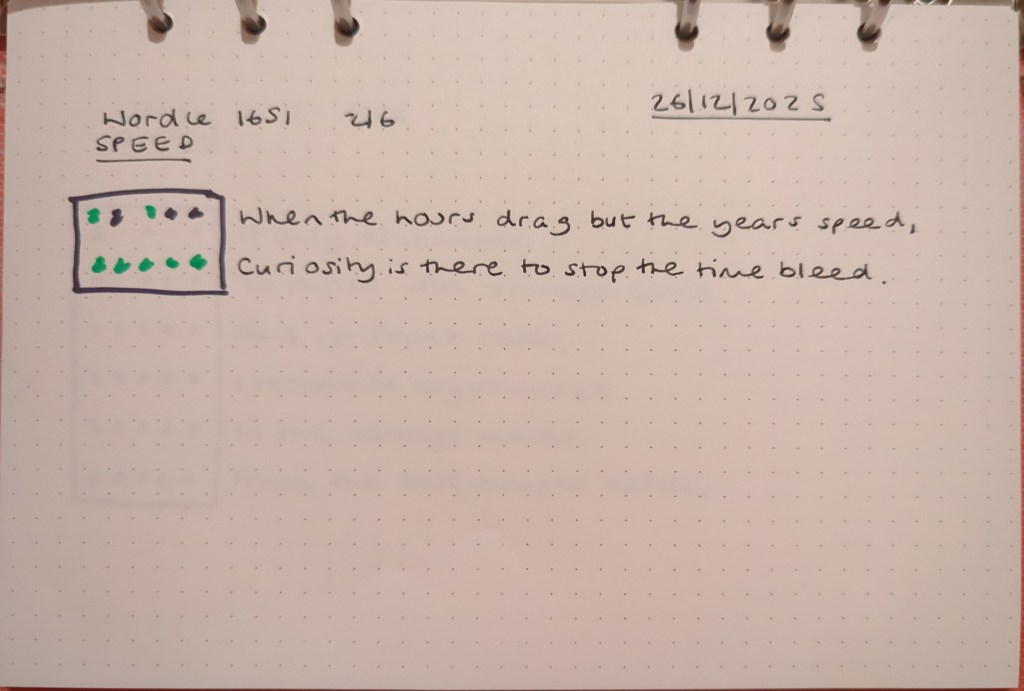 Wordle 1651 2/6
26/12/2025
SPEED
When the hours drag but the years speed,
Curiosity is there to stop the time bleed.